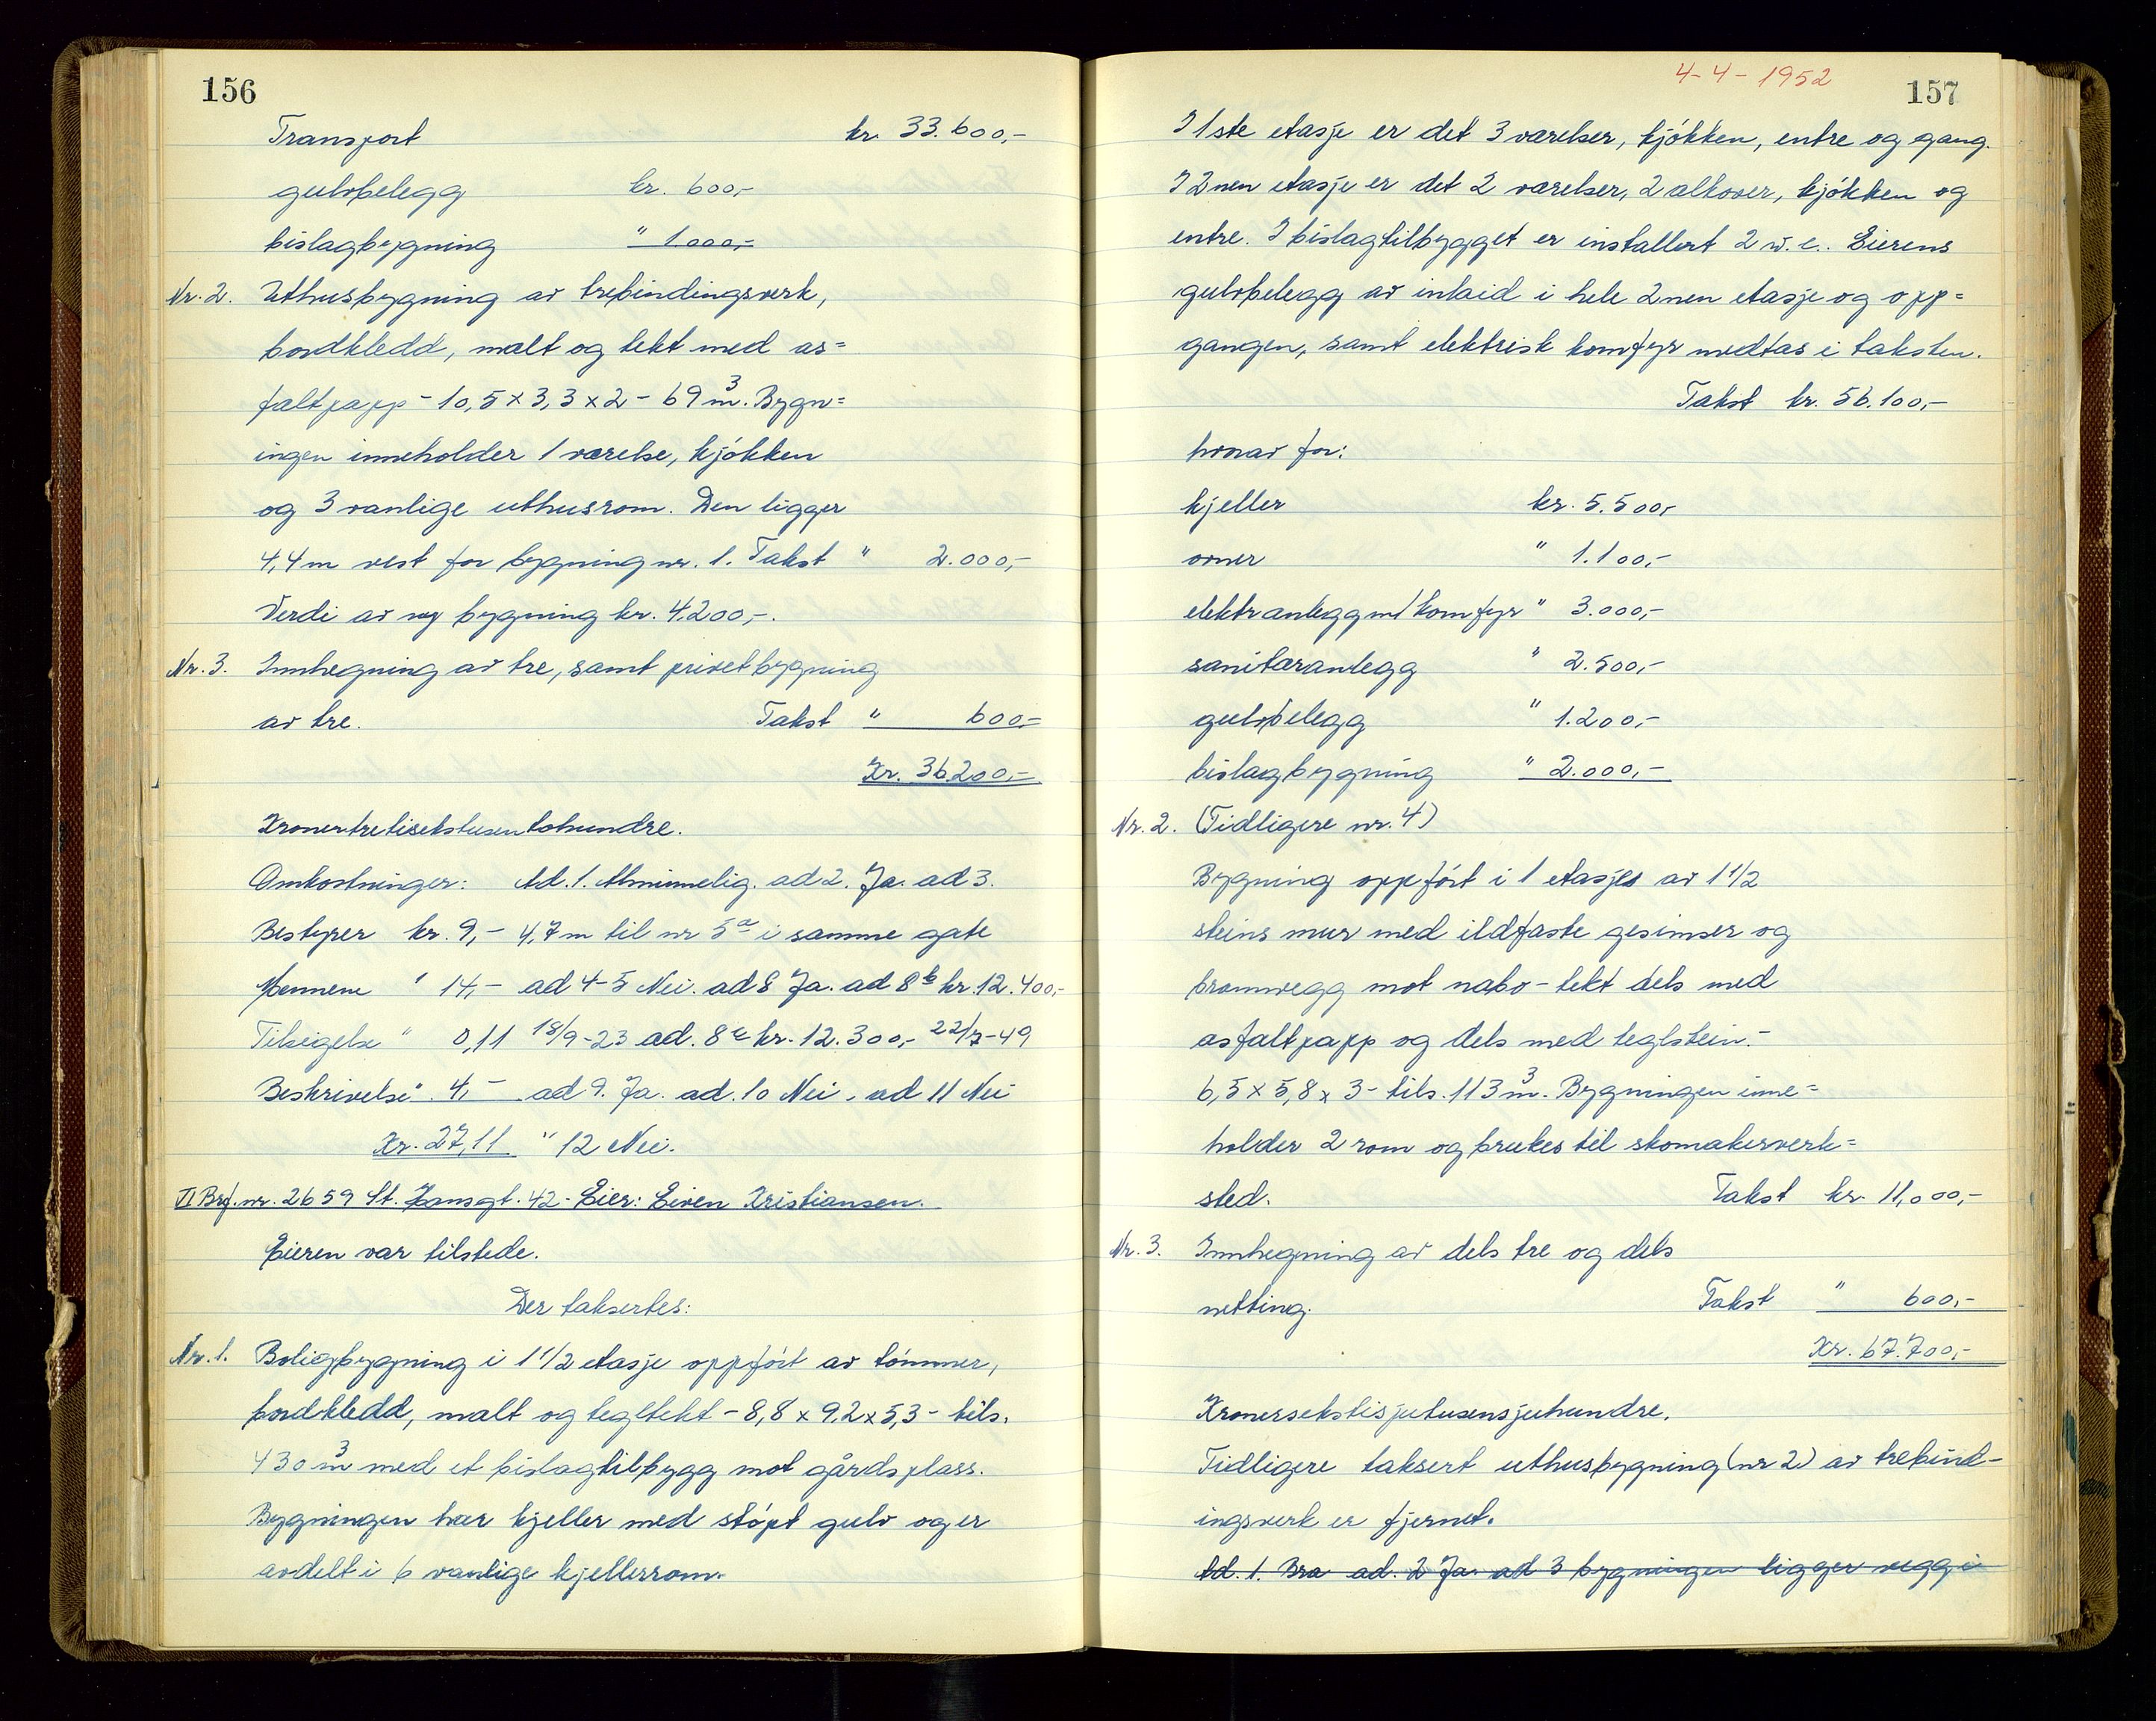 156
Transport kr. 33.600,-
gulvbelegg kr. 600,-
bislagbygning " 1000,-
Nr. 2. Uthusbygning av trebindingsverk,
bordkledd, malt og tekt med as=
faltpapp - 10,5 x 3,3 x 2 - 69 m³. Bygn=
ingen inneholder 1 værelse, kjøkken
og 3 vanlige uthusrom. Den ligger
4,4 m vest for bygning nr. 1. Takst " 2.000,-
Verdi av ny bygning kr. 4.200,-.
Nr. 3. Innhegning av tre, samt privetbygning
av tre. Takst " 600,-
Kr. 36.200,-
Kronertretisekstusentohundre.
Omkostninger: Ad. 1. Alminnelig. ad 2. Ja. ad 3.
Bestyrer kr. 9,- 4,7 m til nr 5a i samme gate
Mennene " 14,- ad 4-5 Nei. ad 8 Ja. ad 8b kr. 12.400,-
Tilsigelse " 0,11 18/9-23 ad. 8c kr. 12.300,- 22/7-49
Beskrivelse " 4,- ad 9. Ja. ad. 10 Nei. ad 11 Nei
Kr. 27,11 " 12 Nei.
II Brf. nr. 2659 St. Hansgt. 42 - Eier: Eiven Kristiansen.
Eieren var tilstede.
Der taksertes:
Nr. 1. Boligbygning i 1 1/2 etasje oppført av tømmer,
bordkledd, malt og tegltekt - 8,8 x 9,2 x 5,3 - tils.
430 m³ med et bislagtilbygg mot gårdsplass.
Bygningen har kjeller med støpt gulv og er
avdelt i 6 vanlige kjellerrom.
4-4-1952
157
I 1ste etasje er det 3 værelser, kjøkken, entre og gang.
I 2nen etasje er det 2 værelser, 2 alkover, kjøkken og
entre. I bislagtilbygget er installert 2 w.c. Eierens
gulvbelegg av inlaid i hele 2nen etasje og opp=
gangen, samt elektrisk komfyr medtas i taksten.
Takst kr. 56.100,-
hvorav for:
kjeller kr. 5.500,-
ovner " 1.100,-
elektr anlegg m/komfyr " 3.000,-
sanitæranlegg " 2.500,-
gulvbelegg " 1.200,-
bislagbygning " 2.000,-
Nr. 2. (Tidligere nr. 4)
Bygning oppført i 1 etasjes av 1 1/2
steins mur med ildfaste gesimser og
brannvegg mot nabo - tekt dels med
asfaltpapp og dels med teglstein. -
6,5 x 5,8 x 3 - tils. 113 m³. Bygningen inne=
holder 2 rom og brukes til skomakerverk=
sted. Takst kr. 11.000,-
Nr. 3. Innhegning av dels tre og dels
netting. Takst " 600,-
Kr. 67.700,-
Kronersekstisjutusensjuhundre.
Tidligere taksert uthusbygning (nr 2) av trebind-
ingsverk er fjernet.
Ad. 1. Bra ad. 2 Ja. ad 3 bygningen ligger vegg i